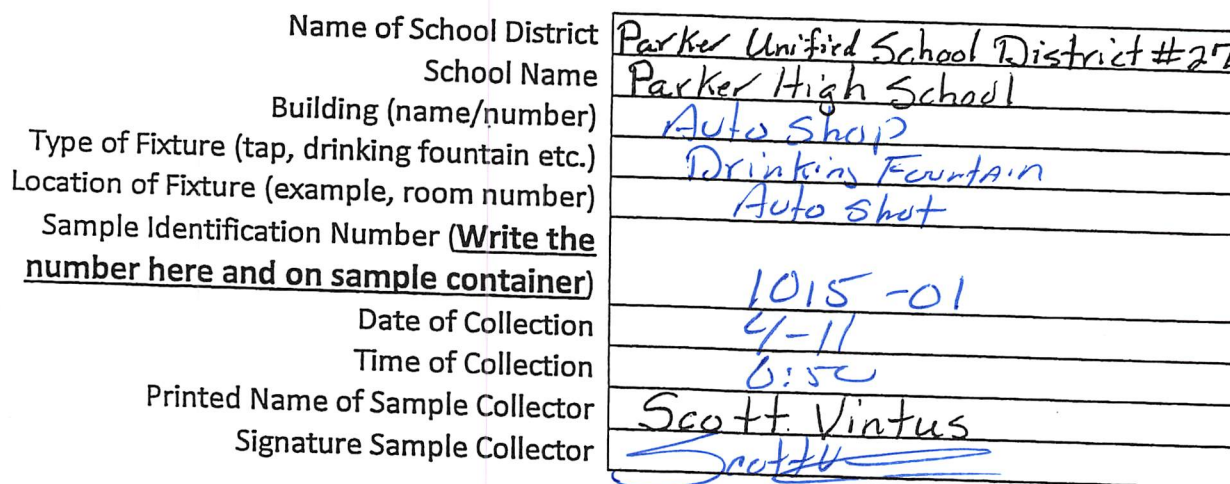 Name of School District Parker Unified School District #27
School Name Parker High School
Building (name/number) Auto Shop
Type of Fixture (tap, drinking fountain etc.) Drinking Fountain
Location of Fixture (example, room number) Auto Shot
Sample Identification Number (Write the
number here and on sample container) 1015-01
Date of Collection 4-11
Time of Collection 6:50
Printed Name of Sample Collector Scott Vintus
Signature Sample Collector